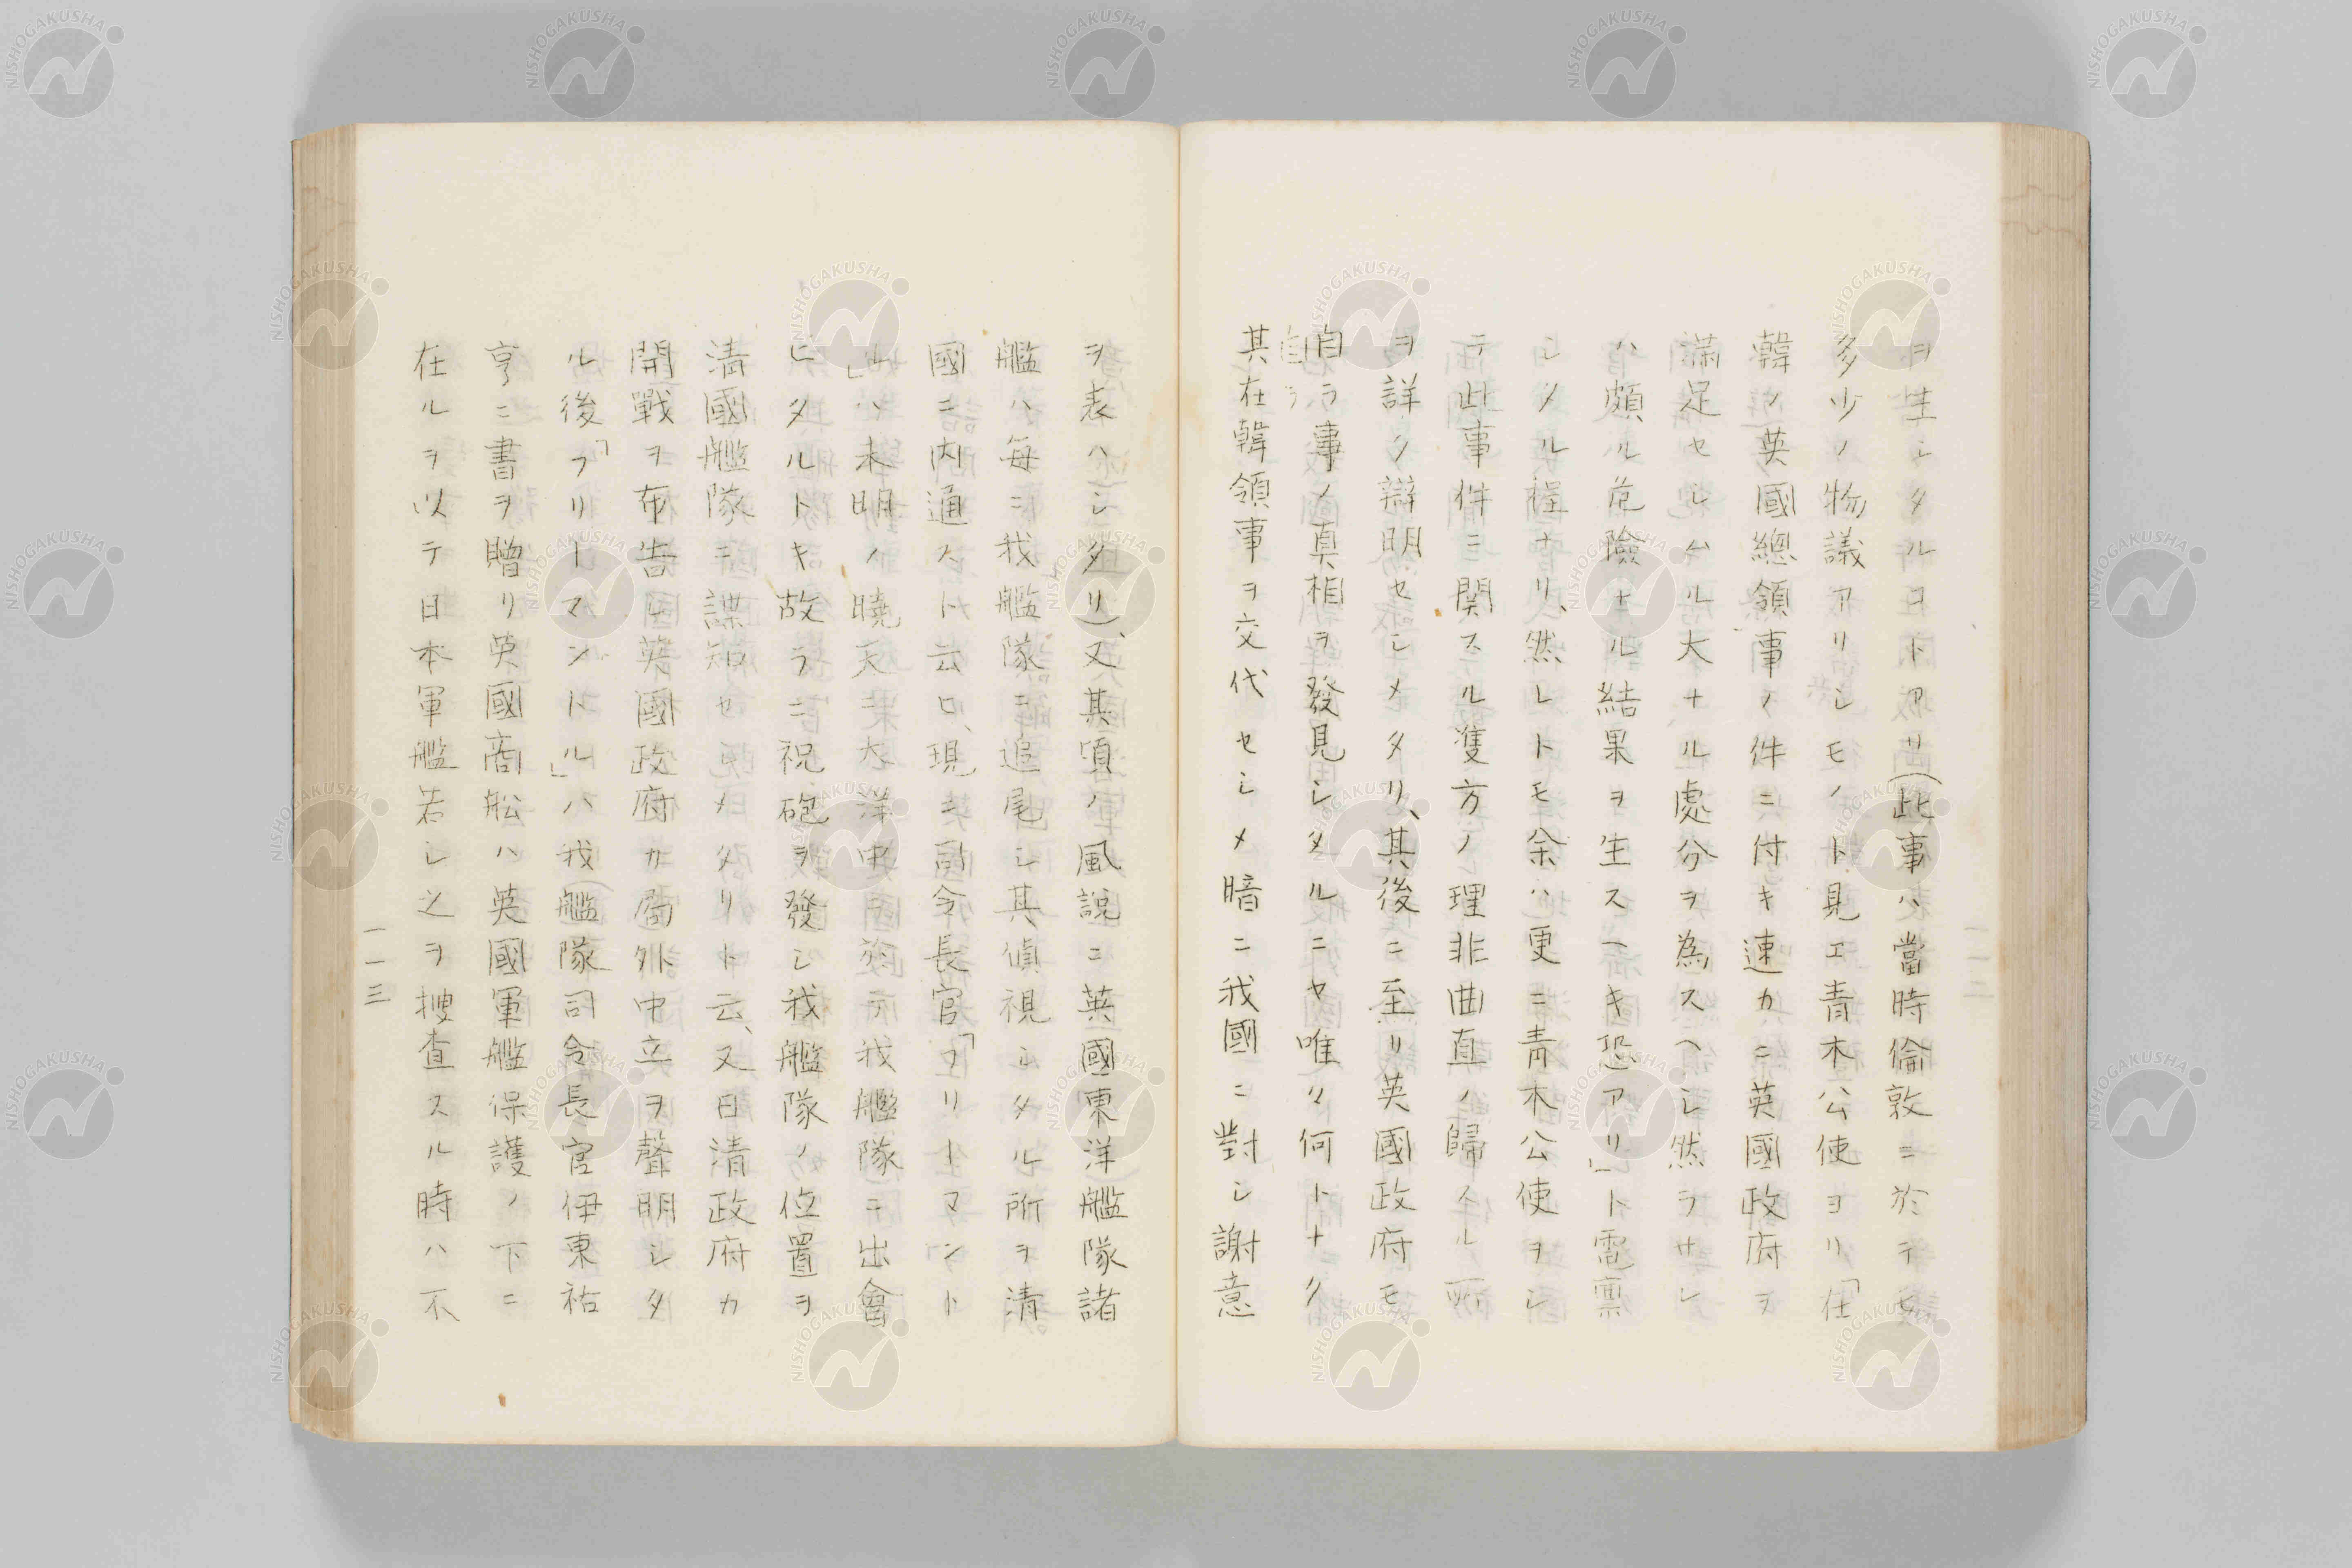 ヲ生シタルコトアリ(此事ハ當時倫敦ニ於テモ
多少ノ物議アリシモノト見エ青木公使ヨリ「在
韓ノ英國總領事ノ件ニ付キ速カニ英國政府ヲ
満足セシムル大ナル處分ヲ為スヘシ然ラサレ
ハ頗ル危險ナル結果ヲ生スヘキ恐アリ」ト電禀
シタル程ナリ、然レトモ余ハ更ニ青木公使ヲシ
テ此事件ニ関スル雙方ノ理非曲直ノ歸スル所
ヲ詳ク辯明セシメタリ、其後ニ至リ英國政府モ
自ラ事ノ真相ヲ發見シタルニヤ唯々何トナク
自ラ
其在韓領事ヲ交代セシメ暗ニ我國ニ對シ謝意
一一二
ヲ表ハシタリ)、又其頃ノ風説ニ英國東洋艦隊諸
艦ハ毎ニ我艦隊ニ追尾シ其偵視シタル所ヲ清
國ニ内通スト云ヒ、現ニ同令長官「フリートマント
ル」ハ未明ノ曉天ニ大洋中ニ於テ我艦隊ニ出會
ヒタルトキ故ラニ祝砲ヲ發シ我艦隊ノ位置ヲ
清國艦隊ニ諜知セシメタリト云、又日清政府カ
開戰ヲ布告シ英國政府カ局外中立ヲ聲明シタ
ル後「フリートマントル」ハ我艦隊司令長官伊東祐
亨ニ書ヲ贈リ英國商舩ハ英國軍艦保護ノ下ニ
在ルヲ以テ日本軍艦若シ之ヲ捜査スル時ハ不
一一三
NISHOGAKUSHA